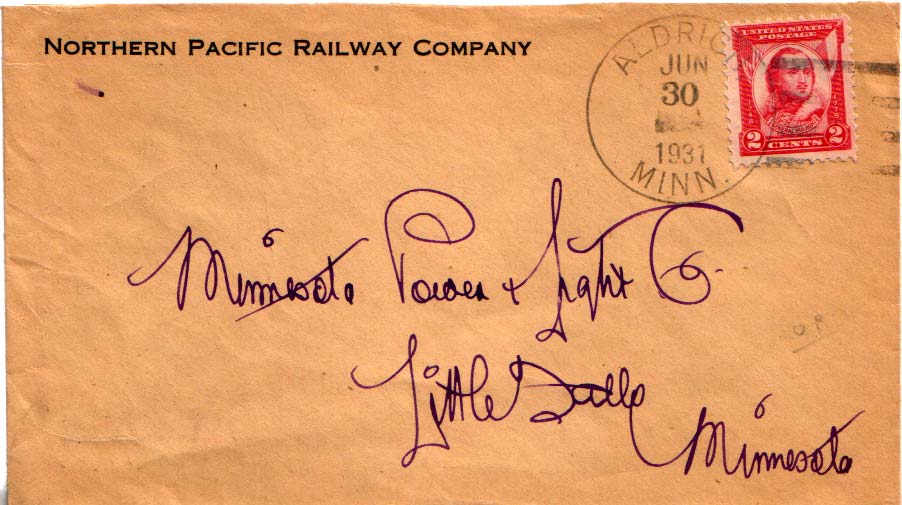 NORTHERN PACIFIC RAILWAY COMPANY
ALDRICH
JUN
30
1931
MINN.
UNITED STATES
POSTAGE
1748
1779
2 CENTS 2
Minnesota Power + Light Co.
Little Falls
Minnesota